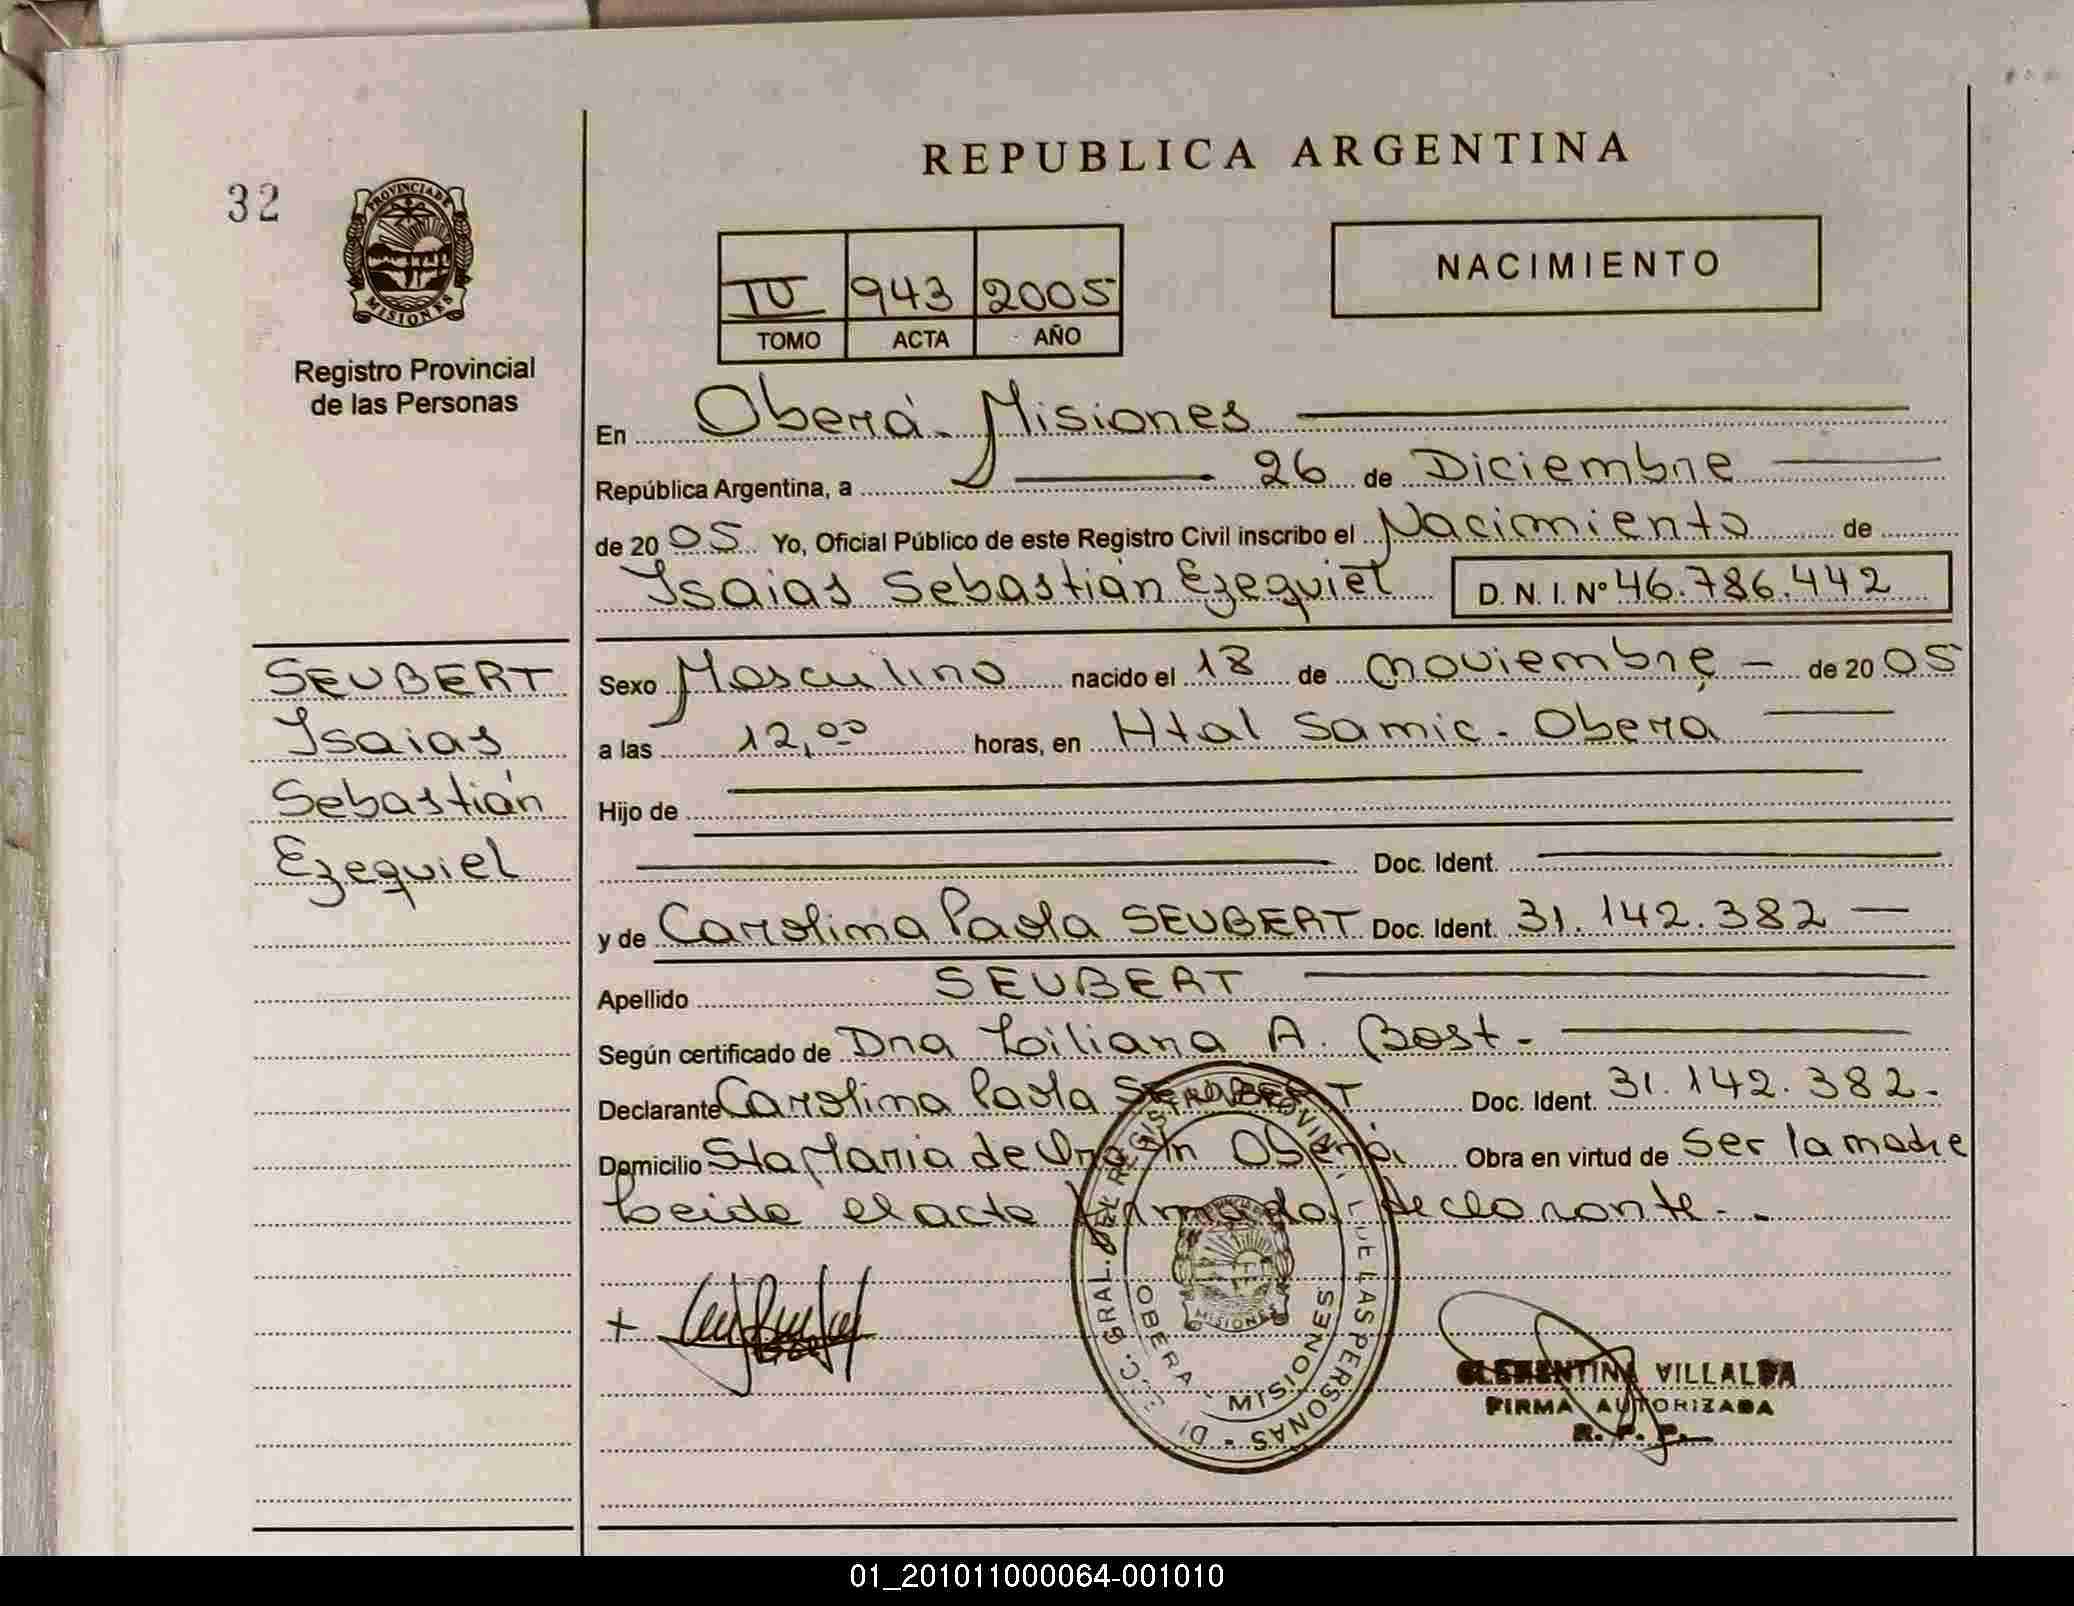 REPUBLICA ARGENTINA
32
PROVINCIA DE
MISIONES
Registro Provincial
de las Personas
NACIMIENTO
IV 943 2005
TOMO ACTA AÑO
En Oberá - Misiones
República Argentina, a 26 de Diciembre
de 2005 Yo, Oficial Público de este Registro Civil inscribo el Nacimiento de
Isaias Sebastián Ezequiel D. N. I. Nº 46.786.442
SEUBERT
Isaias
Sebastián
Ezequiel
Sexo Masculino nacido el 18 de noviembre - de 2005
a las 12,00 horas, en Htal Samic - Obera
Hijo de
Doc. Ident.
y de Carolina Paola SEUBERT Doc. Ident. 31.142.382
Apellido SEUBERT
Según certificado de Dra Liliana A. Bost -
Declarante Carolina Paola SEUBERT Doc. Ident. 31.142.382 -
Domicilio Sta Maria de Oberá Obra en virtud de Ser la madre
Leida el acta firmada declarante -
MISIONES
OBERA - MISIONES
CLEMENTINA VILLALBA
FIRMA AUTORIZADA
R. P. P.
01_201011000064-001010